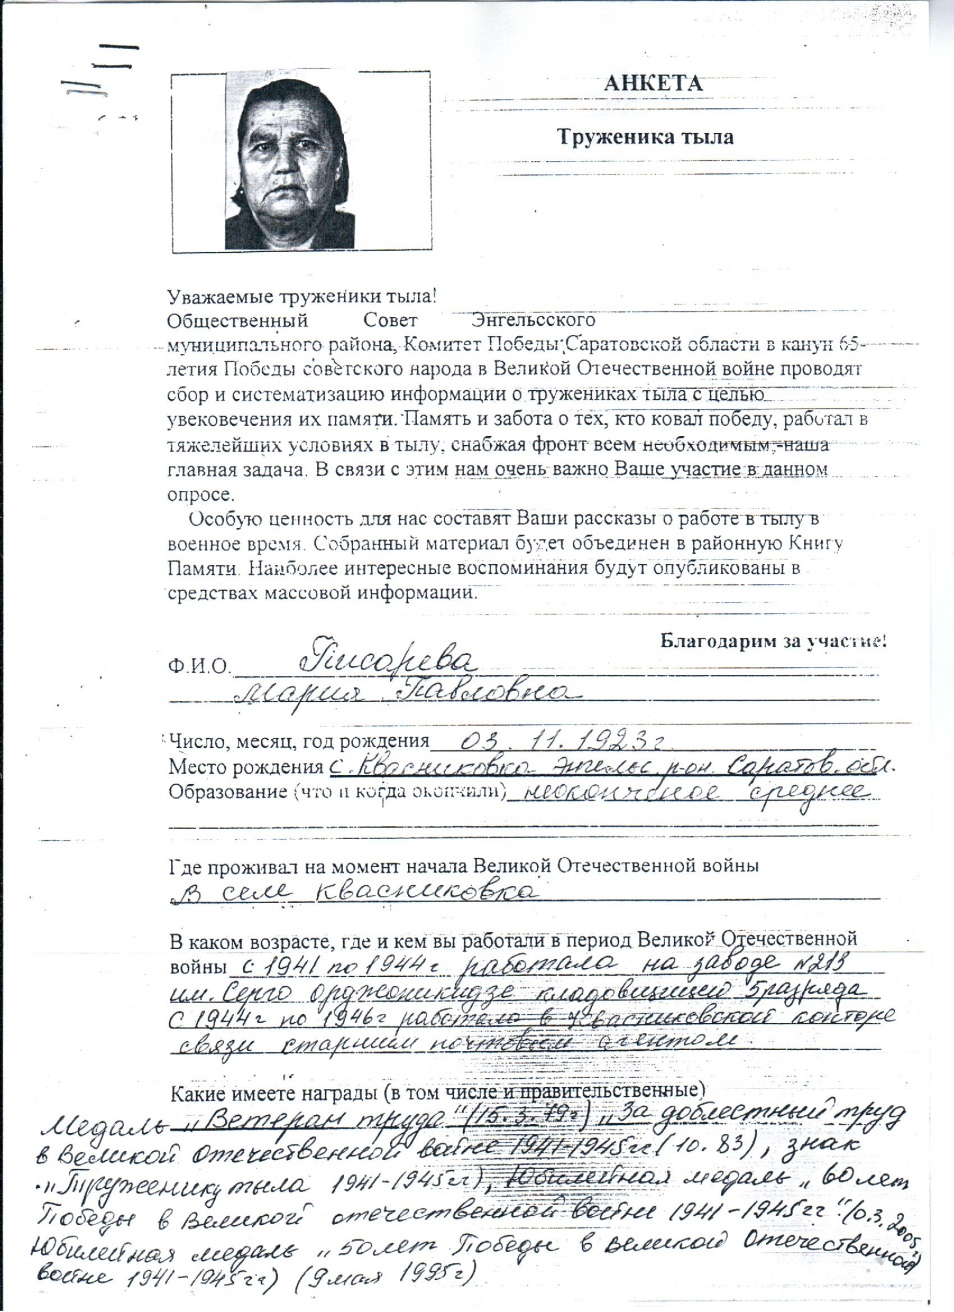 АНКЕТА
Труженика тыла
Уважаемые труженики тыла!
Общественный Совет Энгельсского
муниципального района, Комитет Победы Саратовской области в канун 65-
летия Победы советского народа в Великой Отечественной войне проводят
сбор и систематизацию информации о тружениках тыла с целью
увековечения их памяти. Память и забота о тех, кто ковал победу, работал в
тяжелейших условиях в тылу, снабжая фронт всем необходимым,-наша
главная задача. В связи с этим нам очень важно Ваше участие в данном
опросе.
Особую ценность для нас составят Ваши рассказы о работе в тылу в
военное время. Собранный материал будет объединен в районную Книгу
Памяти. Наиболее интересные воспоминания будут опубликованы в
средствах массовой информации.
Благодарим за участие!
Ф.И.О. Писарева
Мария Павловна
Число, месяц, год рождения 03.11.1923г
Место рождения с. Квасниковка Энгельс р-он Саратов. обл.
Образование (что и когда окончили) неоконченое среднее
Где проживал на момент начала Великой Отечественной войны
в селе Квасниковка
В каком возрасте, где и кем вы работали в период Великой Отечественной
войны с 1941 по 1944г работала на заводе №213
им. Серго Орджоникидзе кладовщицей 5 разряда
с 1944г по 1946г работала в Квасниковской конторе
связи старшим почтовым агентом.
Какие имеете награды (в том числе и правительственные)
Медаль „Ветеран труда“ (15.3.79г) „За доблестный труд
в Великой отечественной войне 1941-1945гг (10.83), знак
„Труженику тыла 1941-1945гг), Юбилейная медаль „60 лет
Победы в Великой отечественной войне 1941-1945гг“ (0.3.2005г)
Юбилейная медаль „50 лет Победы в Великой Отечественной
войне 1941-1945гг) (9 мая 1995г)